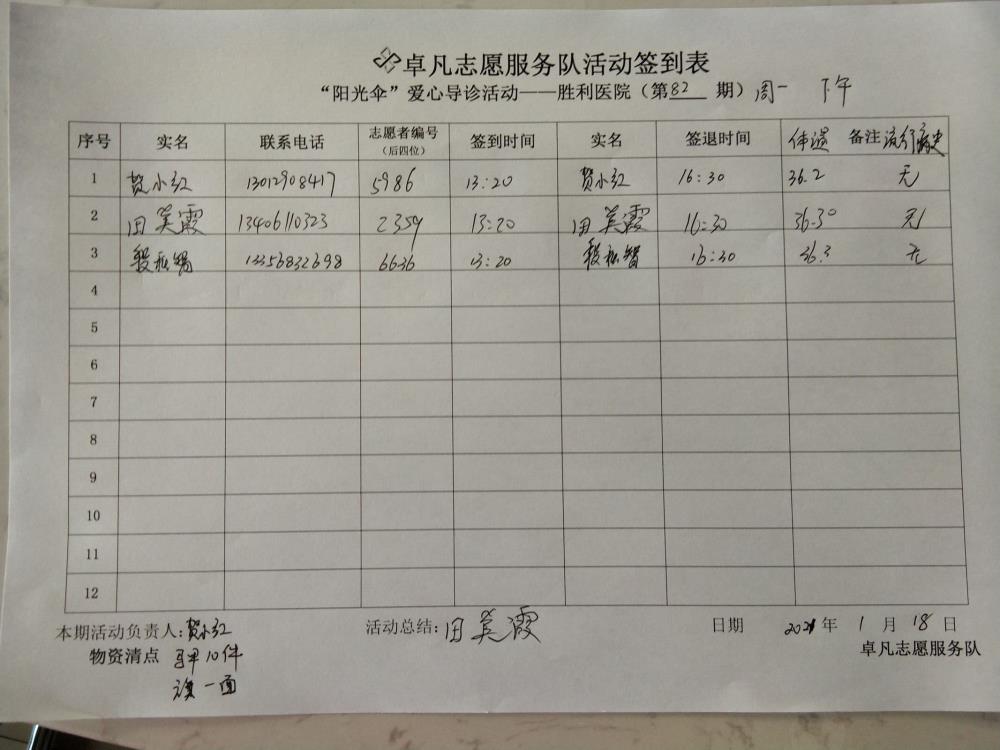 卓凡志愿服务队活动签到表
“阳光伞”爱心导诊活动——胜利医院（第82期）周一 下午
序号 实名 联系电话 志愿者编号（后四位） 签到时间 实名 签退时间 体温 备注 流行病史
1 贺小红 13012908417 5986 13:20 贺小红 16:30 36.2 无
2 田美霞 13406110323 2359 13:20 田美霞 16:30 36.3° 无
3 13356832698 6636 13:20 16:30 36.3 无
4
5
6
7
8
9
10
11
12
本期活动负责人：贺小红 活动总结：田美霞 日期 2021年 1月 18日
物资清点 马甲10件 卓凡志愿服务队
旗一面